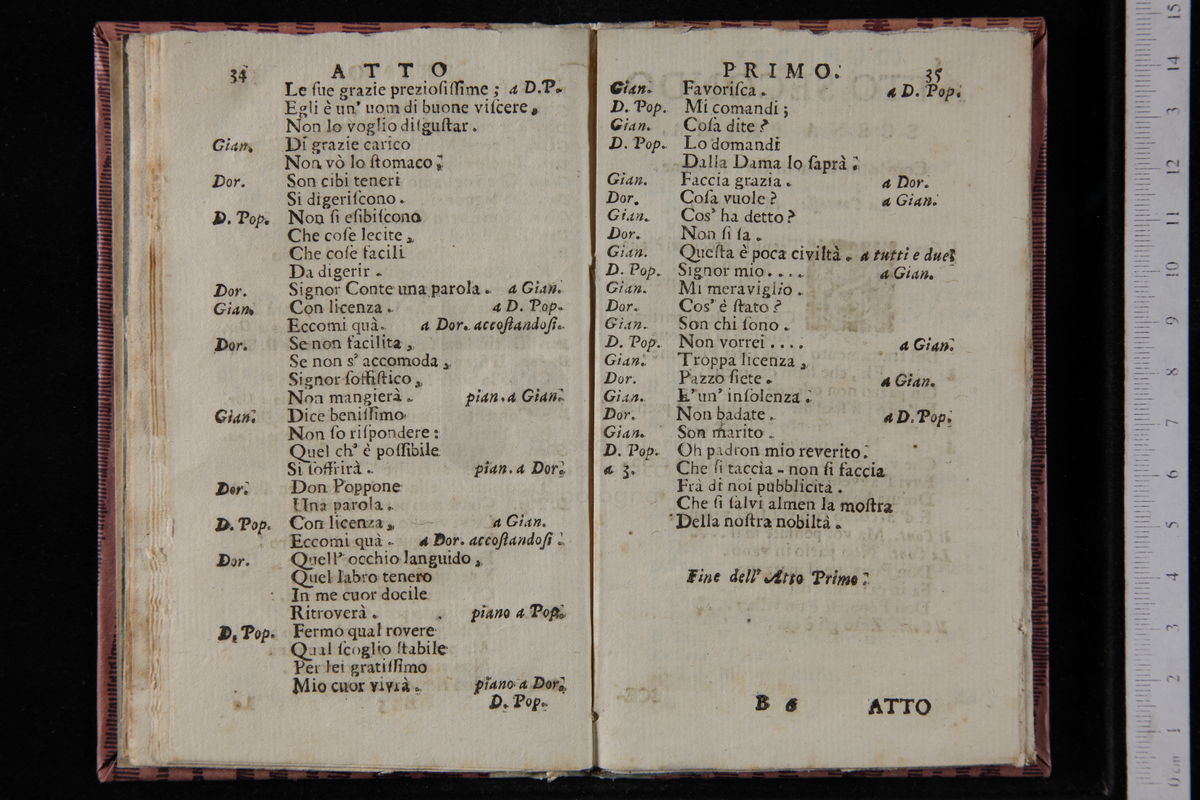 34 ATTO
Le ſue grazie prezioſiſſime ; a D.P.
Egli è un' uom di buone viſcere,
Non lo voglio diſguſtar.
Gian. Di grazie carico
Non vò lo ſtomaco;
Dor. Son cibi teneri
Si digeriſcono.
D. Pop. Non ſi eſibiſcono
Che coſe lecite,
Che coſe facili
Da digerir.
Dor. Signor Conte una parola. a Gian.
Gian. Con licenza. a D. Pop.
Eccomi quà. a Dor. accoſtandoſi.
Dor. Se non facilita,
Se non s' accomoda,
Signor ſoffiſtico,
Non mangierà. pian. a Gian.
Gian. Dice beniſſimo
Non ſo riſpondere:
Quel ch' è poſſibile
Si ſoffrirà. pian. a Dor.
Dor. Don Poppone
Una parola.
D. Pop. Con licenza, a Gian.
Eccomi quà. a Dor. accoſtandoſi.
Dor. Quell' occhio languido,
Quel labro tenero
In me cuor docile
Ritroverà. piano a Pop.
D. Pop. Fermo qual rovere
Qual ſcoglio ſtabile
Per lei gratiſſimo
Mio cuor vivrà. piano a Dor.
D. Pop.
PRIMO. 35
Gian. Favoriſca. a D. Pop.
D. Pop. Mi comandi;
Gian. Coſa dite?
D. Pop. Lo domandi
Dalla Dama lo ſaprà.
Gian. Faccia grazia. a Dor.
Dor. Coſa vuole? a Gian.
Gian. Cos' ha detto?
Dor. Non ſi ſa.
Gian. Queſta è poca civiltà. a tutti e due.
D. Pop. Signor mio.... a Gian.
Gian. Mi meraviglio.
Dor. Cos' è ſtato?
Gian. Son chi ſono.
D. Pop. Non vorrei.... a Gian.
Gian. Troppa licenza,
Dor. Pazzo ſiete. a Gian.
Gian. E' un' inſolenza.
Dor. Non badate. a D. Pop.
Gian. Son marito.
D. Pop. Oh padron mio reverito.
a 3. Che ſi taccia - non ſi faccia
Frà di noi pubblicità.
Che ſi ſalvi almen la moſtra
Della noſtra nobiltà.
Fine dell' Atto Primo.
B 6 ATTO